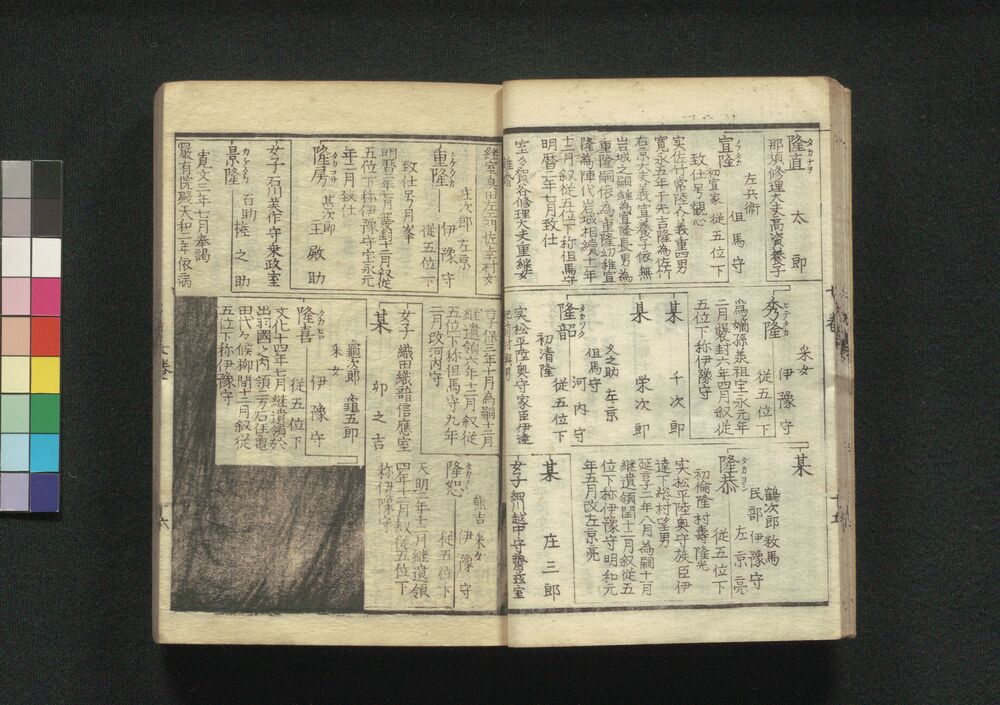 隆直
タカナヲ
太郎
那須修理大夫髙資養子
左兵衛
宣隆
ノフタカ
但馬守
初宣家 従五位下
致仕号観心
実佐竹常陸介義重四男
寛永五年于先吉隆為佐竹
右京大夫義宣養子依無
岩城之嗣雖為宣隆長男為
重隆嗣依為重隆幼稚宣
隆為陣代岩城相續十一年
十二月叙従五位下称但馬守
明暦二年七月致仕
室多賀谷修理大夫重経女
秀隆
ヒテタカ
采女
伊豫守
従五位下
為嫡孫承祖宝永元年
二月襲封六年四月叙従
五位下称伊豫守
某 千次郎
某 栄次郎
隆韶
タカツク
文之助 左京
但馬守
河内守
従五位下
初清隆
実松平陸奥守家臣伊達
某
鶴次郎 数馬
民部 伊豫守
左京亮
隆恭
タカヨシ
従五位下
初倫隆 村壽 隆光
実松平陸奥守族臣伊
達下総村望男
延享二年八月為嗣十月
継遺領閏十二月叙従五
位下称伊豫守明和元
年五月改左京亮
某 庄三郎
女子 細川越中守齊茲室
継室真田左衛門佐幸村女
重隆
シケタカ
庄次郎 左京
伊豫守
従五位下
致仕号月峯
明暦二年七月襲封十二月叙従
五位下称伊豫守宝永元
年二月致仕
隆房
タカフサ
甚次郎
主殿助
女子 石川美作守乗政室
景隆
カケタカ
百助
権之助
寛文三年七月奉謁
嚴有院殿天和二年依病
享保三年十月為嗣十二月
継遺領六年十二月叙従
五位下称但馬守九年
三月改河内守
女子 織田織部信應室
某 卯之吉
隆喜
タカヒロ
亀次郎 亀五郎
采女
伊豫守
従五位下
文化十四年七月継遺領於
出羽國之内領二万石住亀
田代々候柳間十二月叙従
五位下称伊豫守
隆恕
熊吉 采女
伊豫守
従五位下
天明二年十二月継遺領
四年十二月叙従五位下
称伊豫守